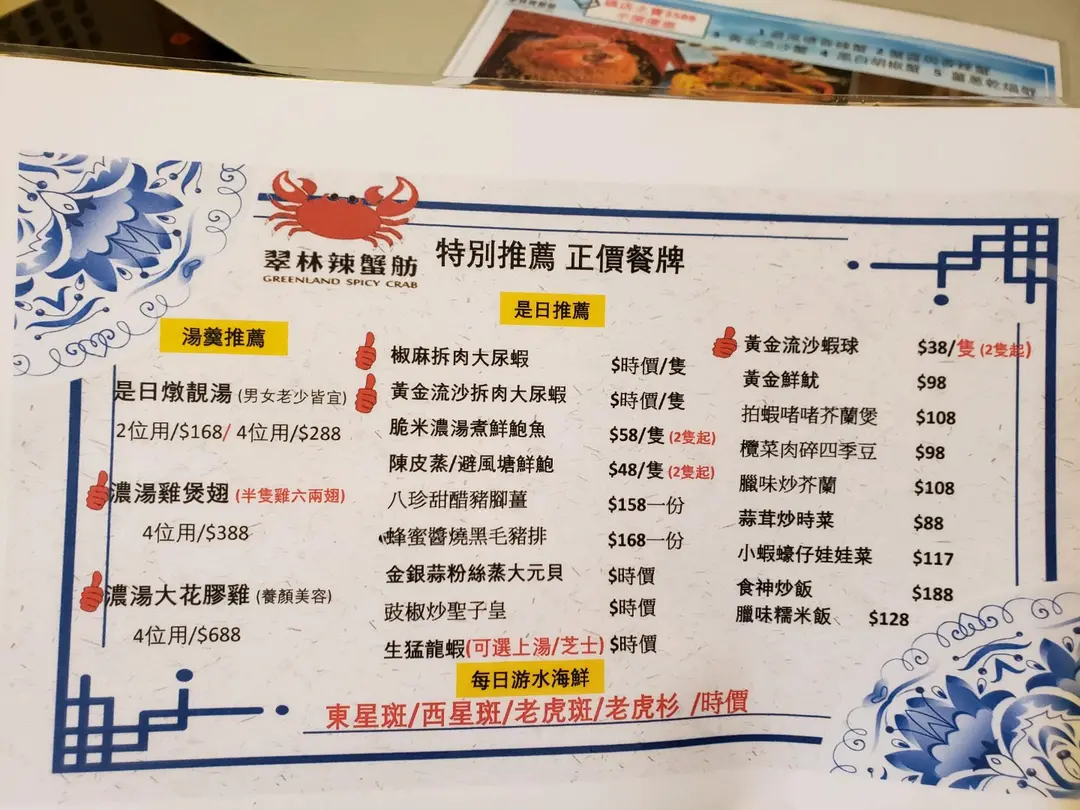 碼店上賣$588
不開優惠
1 避風塘香辣蟹 2 蟹醬焗香辣蟹
3 黃金流沙蟹 4 黑白胡椒蟹 5 薑蔥乾焗蟹
翠林辣蟹舫
GREENLAND SPICY CRAB
特別推薦 正價餐牌
湯羹推薦
是日燉靚湯 (男女老少皆宜)
2位用/$168/ 4位用/$288
濃湯雞煲翅 (半隻雞六兩翅)
4位用/$388
濃湯大花膠雞 (養顏美容)
4位用/$688
是日推薦
椒麻拆肉大尿蝦 $時價/隻
黃金流沙拆肉大尿蝦 $時價/隻
脆米濃湯煮鮮鮑魚 $58/隻 (2隻起)
陳皮蒸/避風塘鮮鮑 $48/隻 (2隻起)
八珍甜醋豬腳薑 $158一份
蜂蜜醬燒黑毛豬排 $168一份
金銀蒜粉絲蒸大元貝 $時價
豉椒炒聖子皇 $時價
生猛龍蝦(可選上湯/芝士) $時價
黃金流沙蝦球 $38/隻 (2隻起)
黃金鮮魷 $98
拍蝦啫啫芥蘭煲 $108
欖菜肉碎四季豆 $98
臘味炒芥蘭 $108
蒜茸炒時菜 $88
小蝦蠔仔娃娃菜 $117
食神炒飯 $188
臘味糯米飯 $128
每日游水海鮮
東星斑/西星斑/老虎斑/老虎杉 /時價